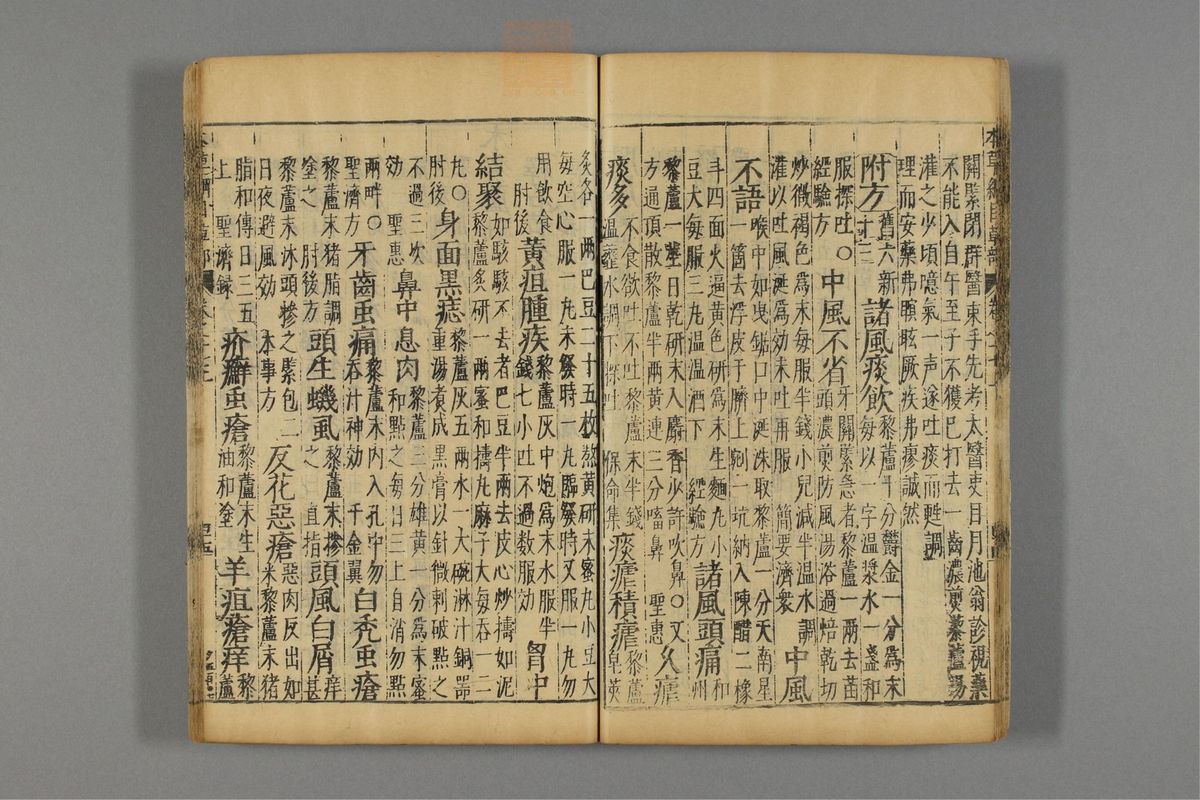 關緊閉群醫束手先考太醫吏目月池翁診視藥
不能入自午至子不獲已打去一齒濃煎藜蘆湯
灌之少頃噫氣一聲遂吐痰而甦調
理而安藥弗瞑眩厥疾弗瘳誠然
附方舊六新十三 諸風痰飲藜蘆十分鬱金一分爲末每以一字温漿水一盞和
服探吐○經驗方 中風不省牙關緊急者藜蘆一兩去苗頭濃煎防風湯浴過焙乾切
炒微褐色爲末每服半錢小兒減半温水調灌以吐風涎爲効未吐再服 簡要濟衆 中風
不語喉中如曳鋸口中涎沫取藜蘆一分天南星一箇去浮皮于臍上剜一坑納入陳醋二橡
斗四面火逼黃色研爲末生麵丸小豆大每服三丸温温酒下 經驗方 諸風頭痛和州
藜蘆一莖日乾研末入麝香少許吹鼻○又方通頂散黎蘆半兩黃連三分㗜鼻 聖惠 久瘧
痰多不食欲吐不吐黎蘆末半錢温虀水調下探吐 保命集 痰瘧積瘧黎蘆皂莢
炙各一兩巴豆二十五枚熬黃研末蜜丸小豆大每空心服一丸未發時一丸臨發時又服一丸勿
用飲食 肘後 黃疸腫疾黎蘆灰中炮爲末水服半錢七小吐不過數服効 胃中
結聚如駭駭不去者巴豆半兩去皮心炒擣如泥黎蘆炙研一兩蜜和擣丸麻子大每吞一二
丸○肘後 身面黑痣黎蘆灰五兩水一大碗淋汁銅器重湯煮成黑膏以針微刺破點之
不過三次効 聖惠 鼻中息肉黎蘆三分雄黃一分爲末蜜和點之每日三上自消勿點
兩畔○聖濟方 牙齒虫痛黎蘆末內入孔中勿吞汁神効 千金翼 白禿虫瘡
黎蘆末猪脂調塗之 肘後方 頭生蟣虱黎蘆末摻之 直指 頭風白屑痒甚
黎蘆末沐頭摻之緊包二日夜避風効 本事方 反花惡瘡惡肉反出如米黎蘆末猪
脂和傅日三五上 聖濟録 疥癬虫瘡黎蘆末生油和塗 羊疽瘡痒黎蘆